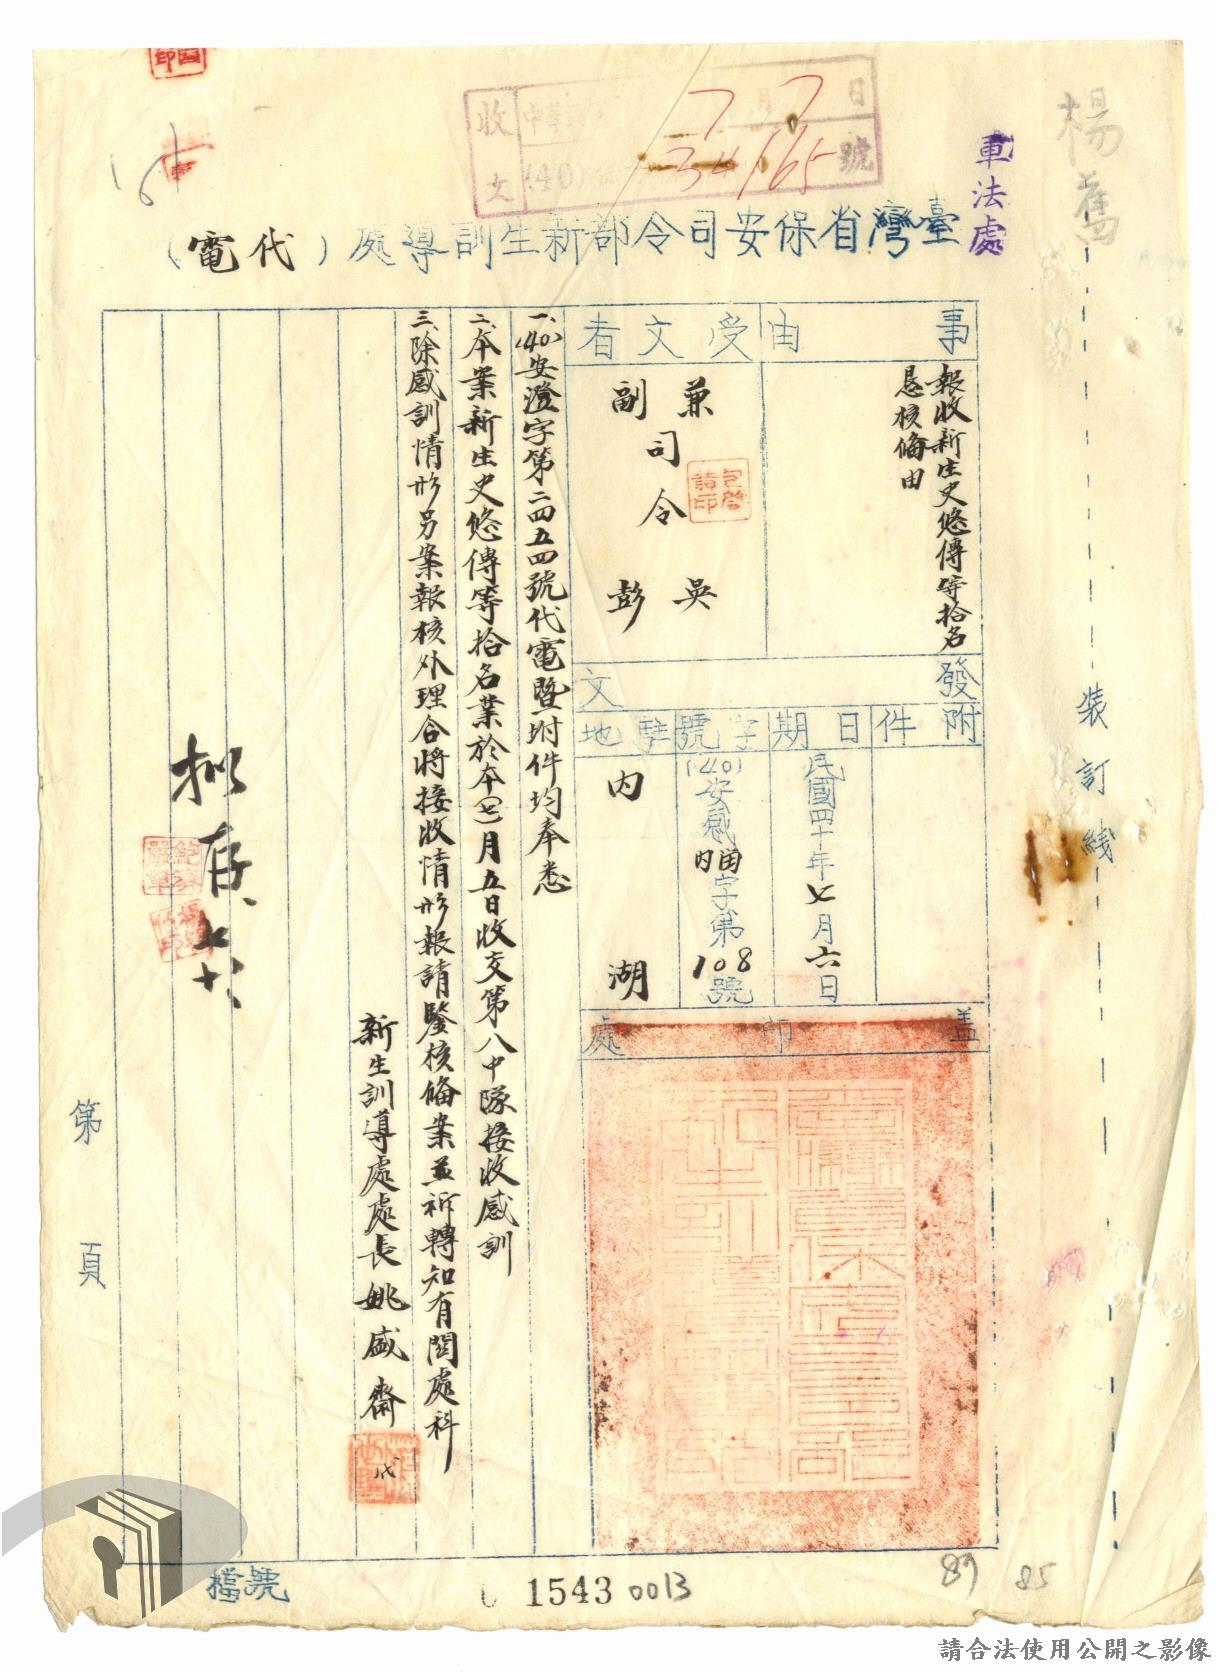 楊舊
軍法處
收文
月7日
(40)
34165號
臺灣省保安司令部新生訓導處(代電)
事由
報收新生史悠傳等拾名
懇核備由
受文者
兼司令吳
副司令彭
發文
附件
日期
民國四十年七月六日
字號
(40)安感內
字第108號
駐地
內湖
蓋印處
一、(40)安澄字第二四五四號代電暨坿件均奉悉
二、本案新生史悠傳等拾名業於本(七)月五日收交第八中隊接收感訓
三、除感訓情形另案報核外理合將接收情形報請鑒核備案並祈轉知有関處科
新生訓導處處長姚盛齋
代
拟存
裝訂綫
第 頁
檔號
1543 0013
89
85
請合法使用公開之影像